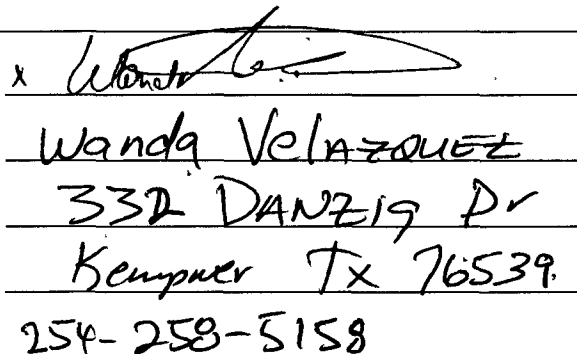 x
Wanda VelAzQUEZ
332 DANZig Dr
Kempner Tx 76539.
254-258-5158